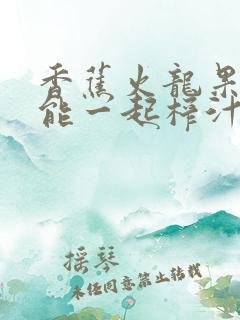 香蕉火龍果
能一起榨汁
摇琴
未经同意禁止转载